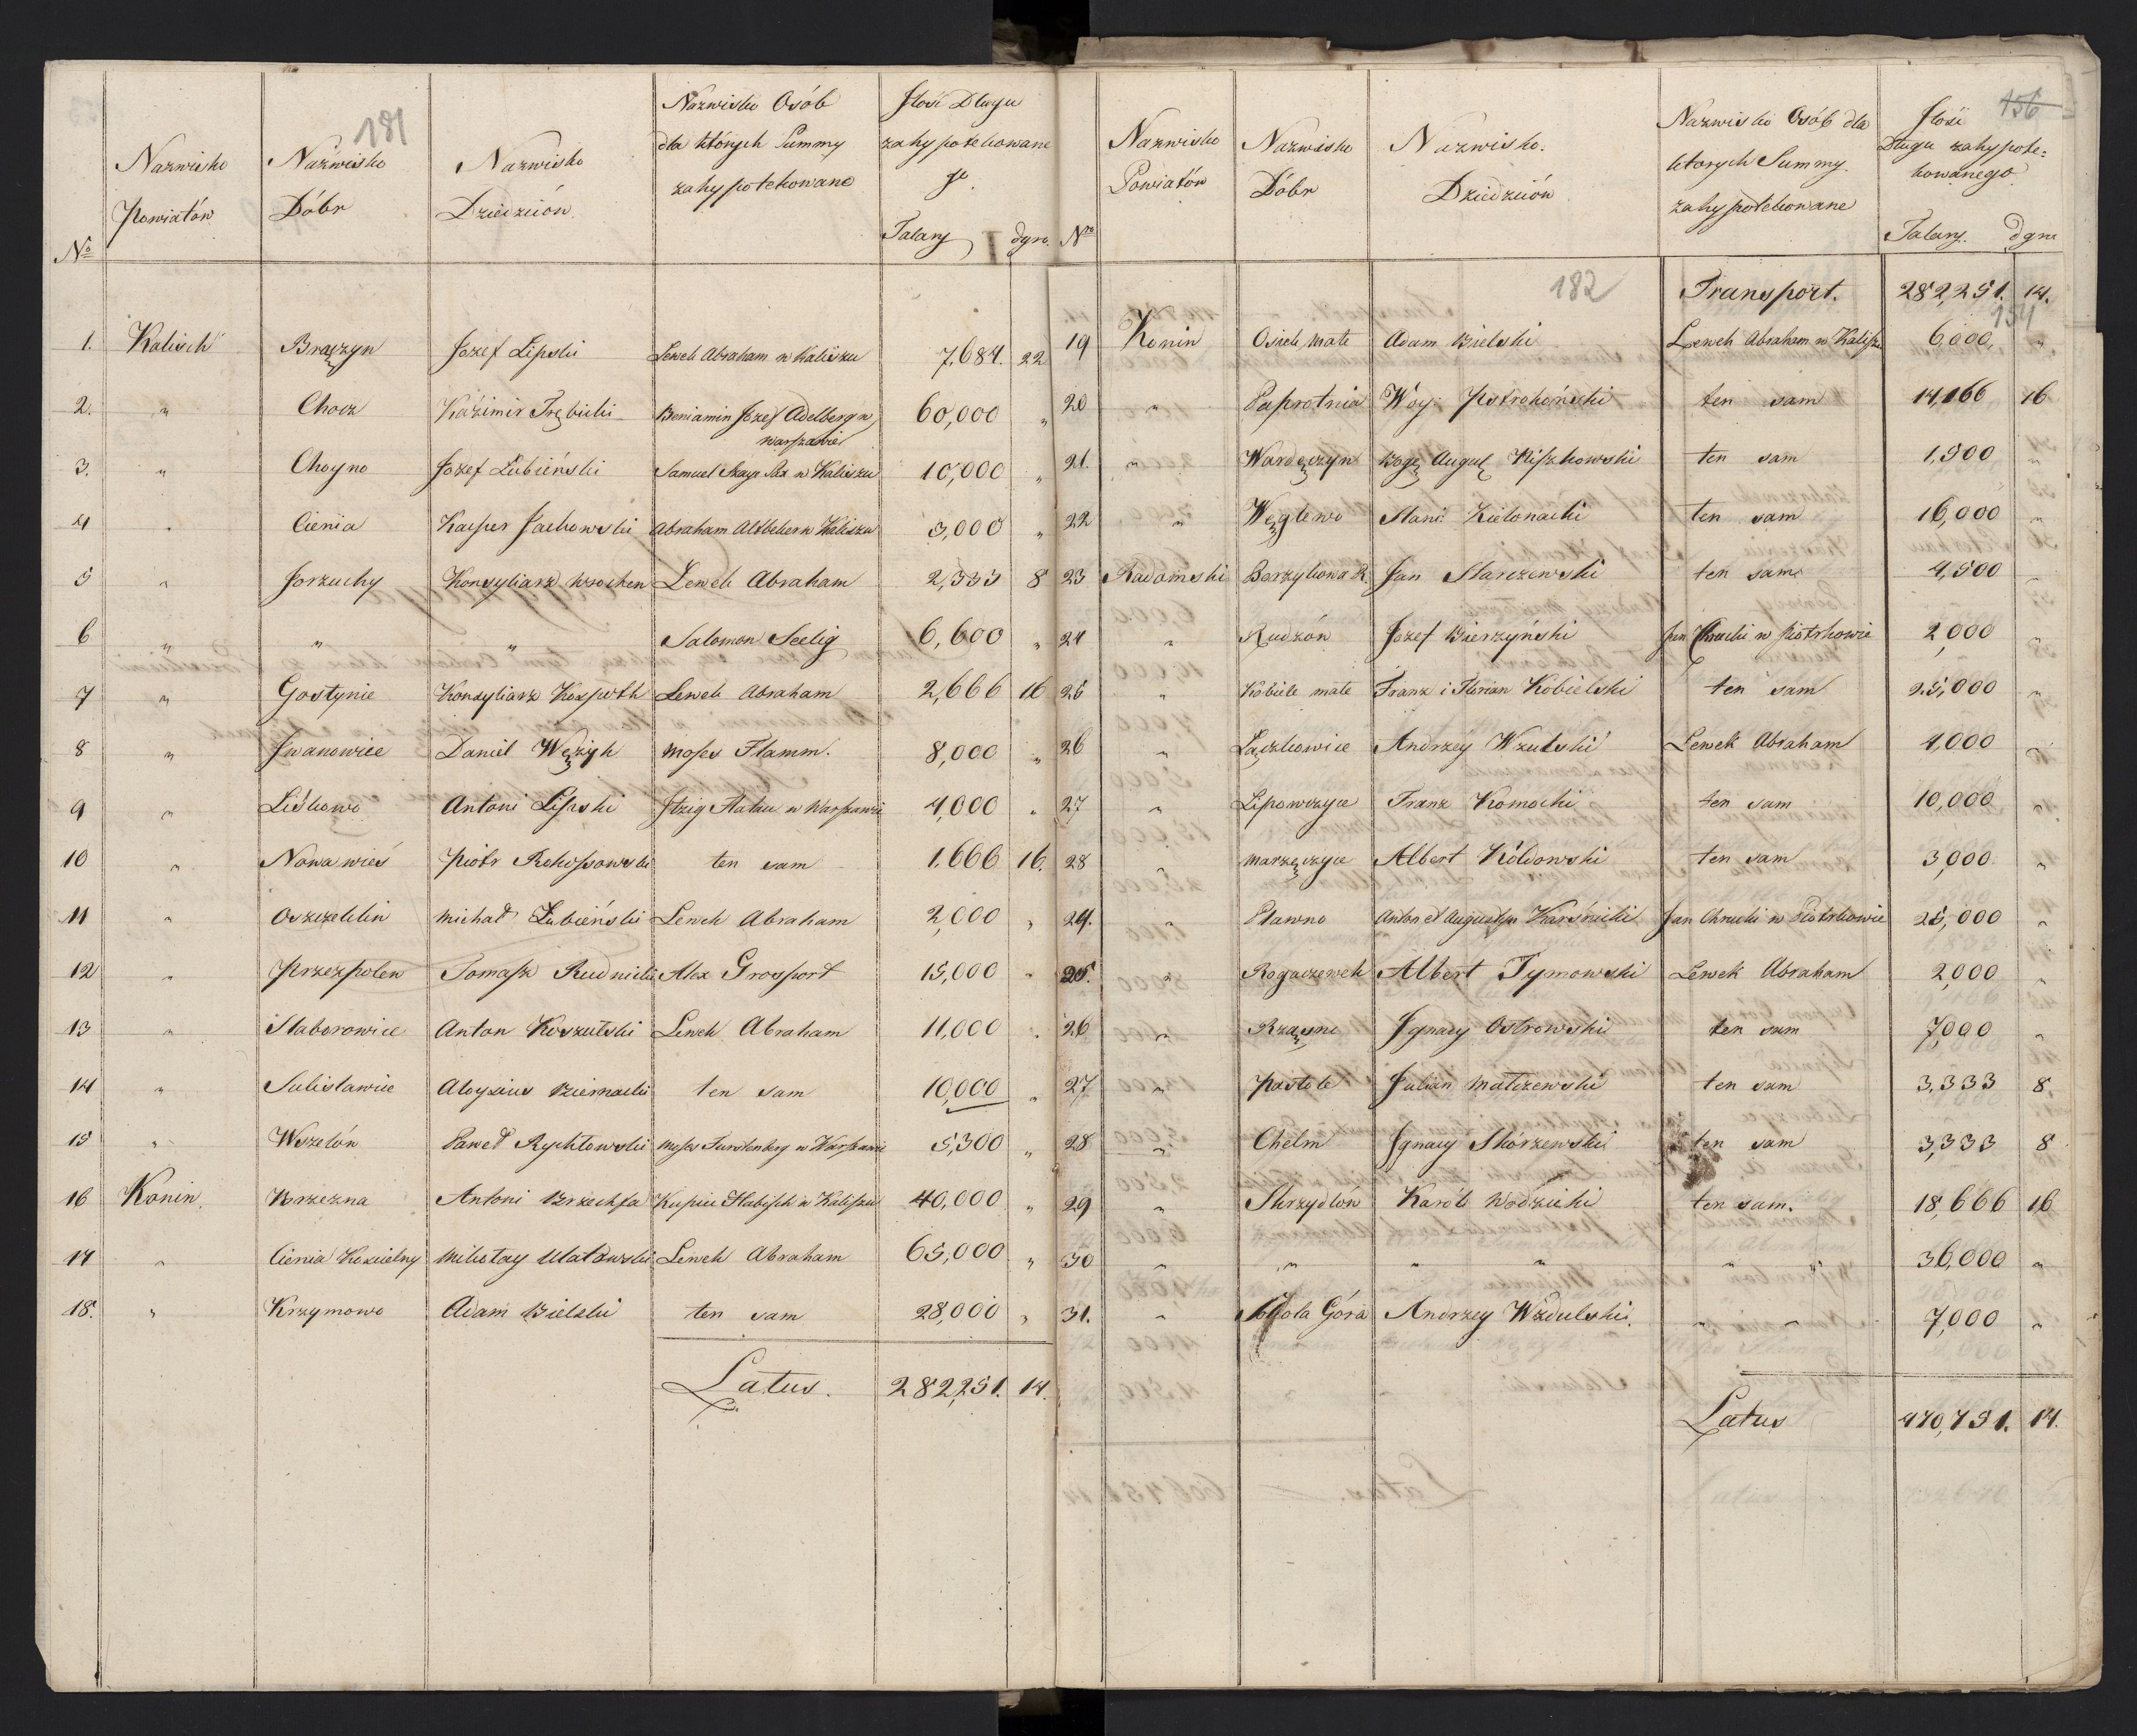 181
Nº
Nazwisko Powiatów
Nazwisko Dóbr
Nazwisko Dziedziców
Nazwisko Osób dla których Summy zahypotekowane
Jlość Długu zahypotekowane go.
Talary dgro.
1. Kalisch Brączyn Jozef Lipski Lewek Abraham w Kaliszu 7,684. 22
2. " Chocz Kaźimir Trębicki Beniamin Jozef Adelberg w Warszawie 60,000 "
3. " Choyno Jozef Łubieński Samuel w Kaliszu 10,000 "
4 " Cienia Kacper Jackowski Abraham w Kaliszu 3,000 "
5 " Jorzuchy Konsyliarz Lewek Abraham 2,333 8
6 " " " Salomon Seelig 6,600 "
7 " Gostynie Konsyliarz Lewek Abraham 2,666 16
8 " Jwanowice Daniel Wężyk Moses Flamm. 8,000 "
9 " Liśkowo Antoni Lipski Jtzig Flatau w Warszawie 4,000 "
10 " Nowa wieś Piotr Rokossowski ten sam 1,666 16.
11 " Oszczeklin Michał Łubieński Lewek Abraham 2,000 "
12 " Przezpolew Tomasz Rudnicki Alex 15,000 "
13 " Staborowice Anton Koszutski Lewek Abraham 11,000 "
14 " Sulisławice Aloysius Biernacki ten sam 10,000 "
15 " Wszelów Paweł Rychłowski Moses w Warszawie 5,300 "
16 Konin. Brzezna Antoni Brzechfa Kupiec w Kaliszu 40,000 "
17 " Cienia Kościelny Mikołay Ulatowski Lewek Abraham 65,000 "
18. " Krzymowo Adam Bielski ten sam 28,000 "
Latus. 282,251. 14.
156
182
154
Nro
Nazwisko Powiatów
Nazwisko Dóbr
Nazwisko. Dziedziców
Nazwisko Osób dla ktorych Summy zahypotekowane
Jlość Długu zahypote= kowanego
Talary. dgro
Transport. 282,251. 14.
19 Konin Osiek małe Adam Bielski Lewek Abraham w Kaliszu 6,000, "
20 " Paprotnia Woy: Pstrokoński ten sam 14,166 16
21. " Wardężyn August Kiszkowski ten sam 1,500 "
22 " Węglewo Stani: Zielonacki ten sam 16,000 "
23 Radomski Jan Starczewski ten sam 4,500 "
24 " Rudzón Jozef Bierzyński Jan Chrucki w Piotrkowie 2,000 "
25 " Kobiele małe Franz i Florian Kobielski ten sam 25,000 "
26 " Łączkowice Andrzey ten sam Lewek Abraham 4,000 "
27 " Lipowczyce Franz Komocki ten sam 10,000 "
28 " Albert Kóldowski ten sam 3,000 "
24. " Pławno Karśnicki Jan Chrucki w Piotrkowie 25,000 "
25. " Rogaczewek Albert Tymowski Lewek Abraham 2,000 "
26 " Rząsne Jgnacy Ostrowski ten sam 7,000 "
27 " Julian Malczewski ten sam 3,333 8
28 " Chelm Jgnacy Skórzewski ten sam 3,333 8
29 " Skrzydlów Karól Wodzicki ten sam. 18,666 16
30 " " " " " 36,000 "
31. " Sokola Góra Andrzey Wzdulski. " " 7,000 "
Latus 470,751. 14.